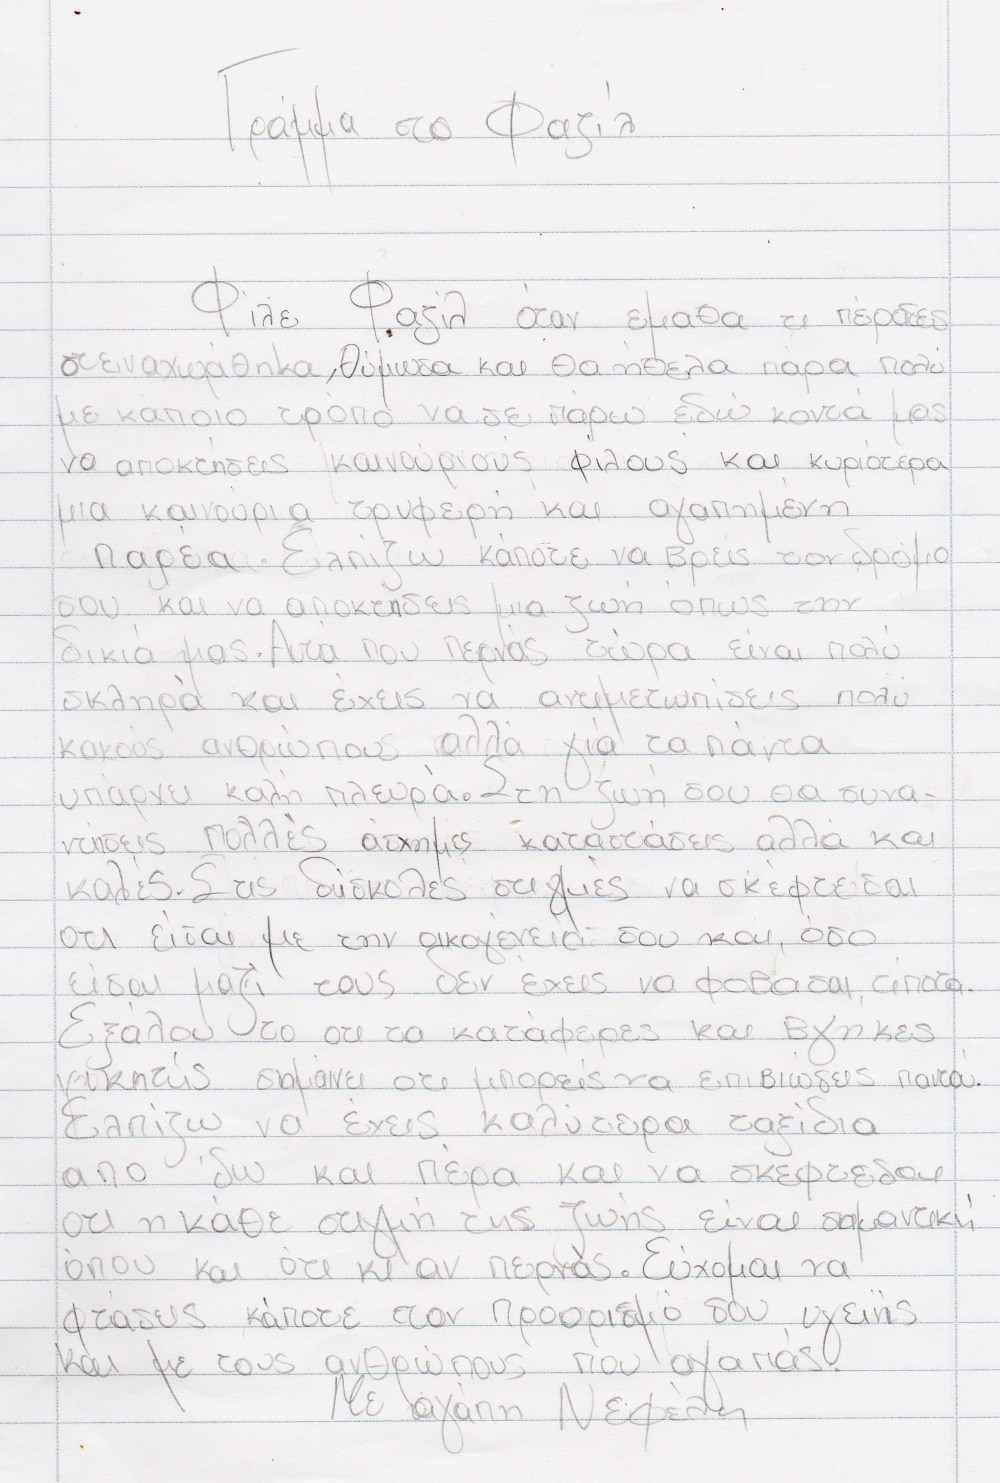 Γράμμα στο Φαζίλ
Φίλε Φαζίλ όταν εμαθα τι πέρασες
στεναχωρήθηκα, θύμωσα και θα ήθελα πάρα πολύ
με κάποιο τρόπο να σε πάρω εδώ κοντά μας
να αποκτήσεις καινούριους φίλους και κυριότερα
μια καινούρια τρυφερή και αγαπημένη
παρέα. Ελπίζω κάποτε να βρεις τον δρόμο
σου και να αποκτήσεις μια ζωή όπως την
δικιά μας. Αυτα που περνάς τώρα είναι πολύ
σκληρά και έχεις να αντιμετωπίσεις πολύ
κακούς ανθρώπους αλλά γιά τα πάντα
υπάρχει καλή πλευρά. Στη ζωή σου θα συνα-
ντήσεις πολλές άσχημες καταστάσεις αλλά και
καλές. Στις δύσκολες στιγμές να σκέφτεσαι
οτι είσαι με την οικογένειά σου και όσο
είσαι μαζί τους δεν έχεις να φοβάσαι τίποτα.
Εξάλου το οτι τα κατάφερες και βγήκες
νικητής σημαίνει οτι μπορείς να επιβιώσεις παντα.
Ελπίζω να έχεις καλύτερα ταξίδια
απο 'δω και πέρα και να σκεφτεσαι
οτι η κάθε στιγμή της ζωής είναι σημαντική
όπου και ότι κι αν περνάς. Εύχομαι να
φτάσεις κάποτε στον προορισμό σου υγειής
και με τους ανθρώπους που αγαπάς.
Με αγάπη Νεφέλη